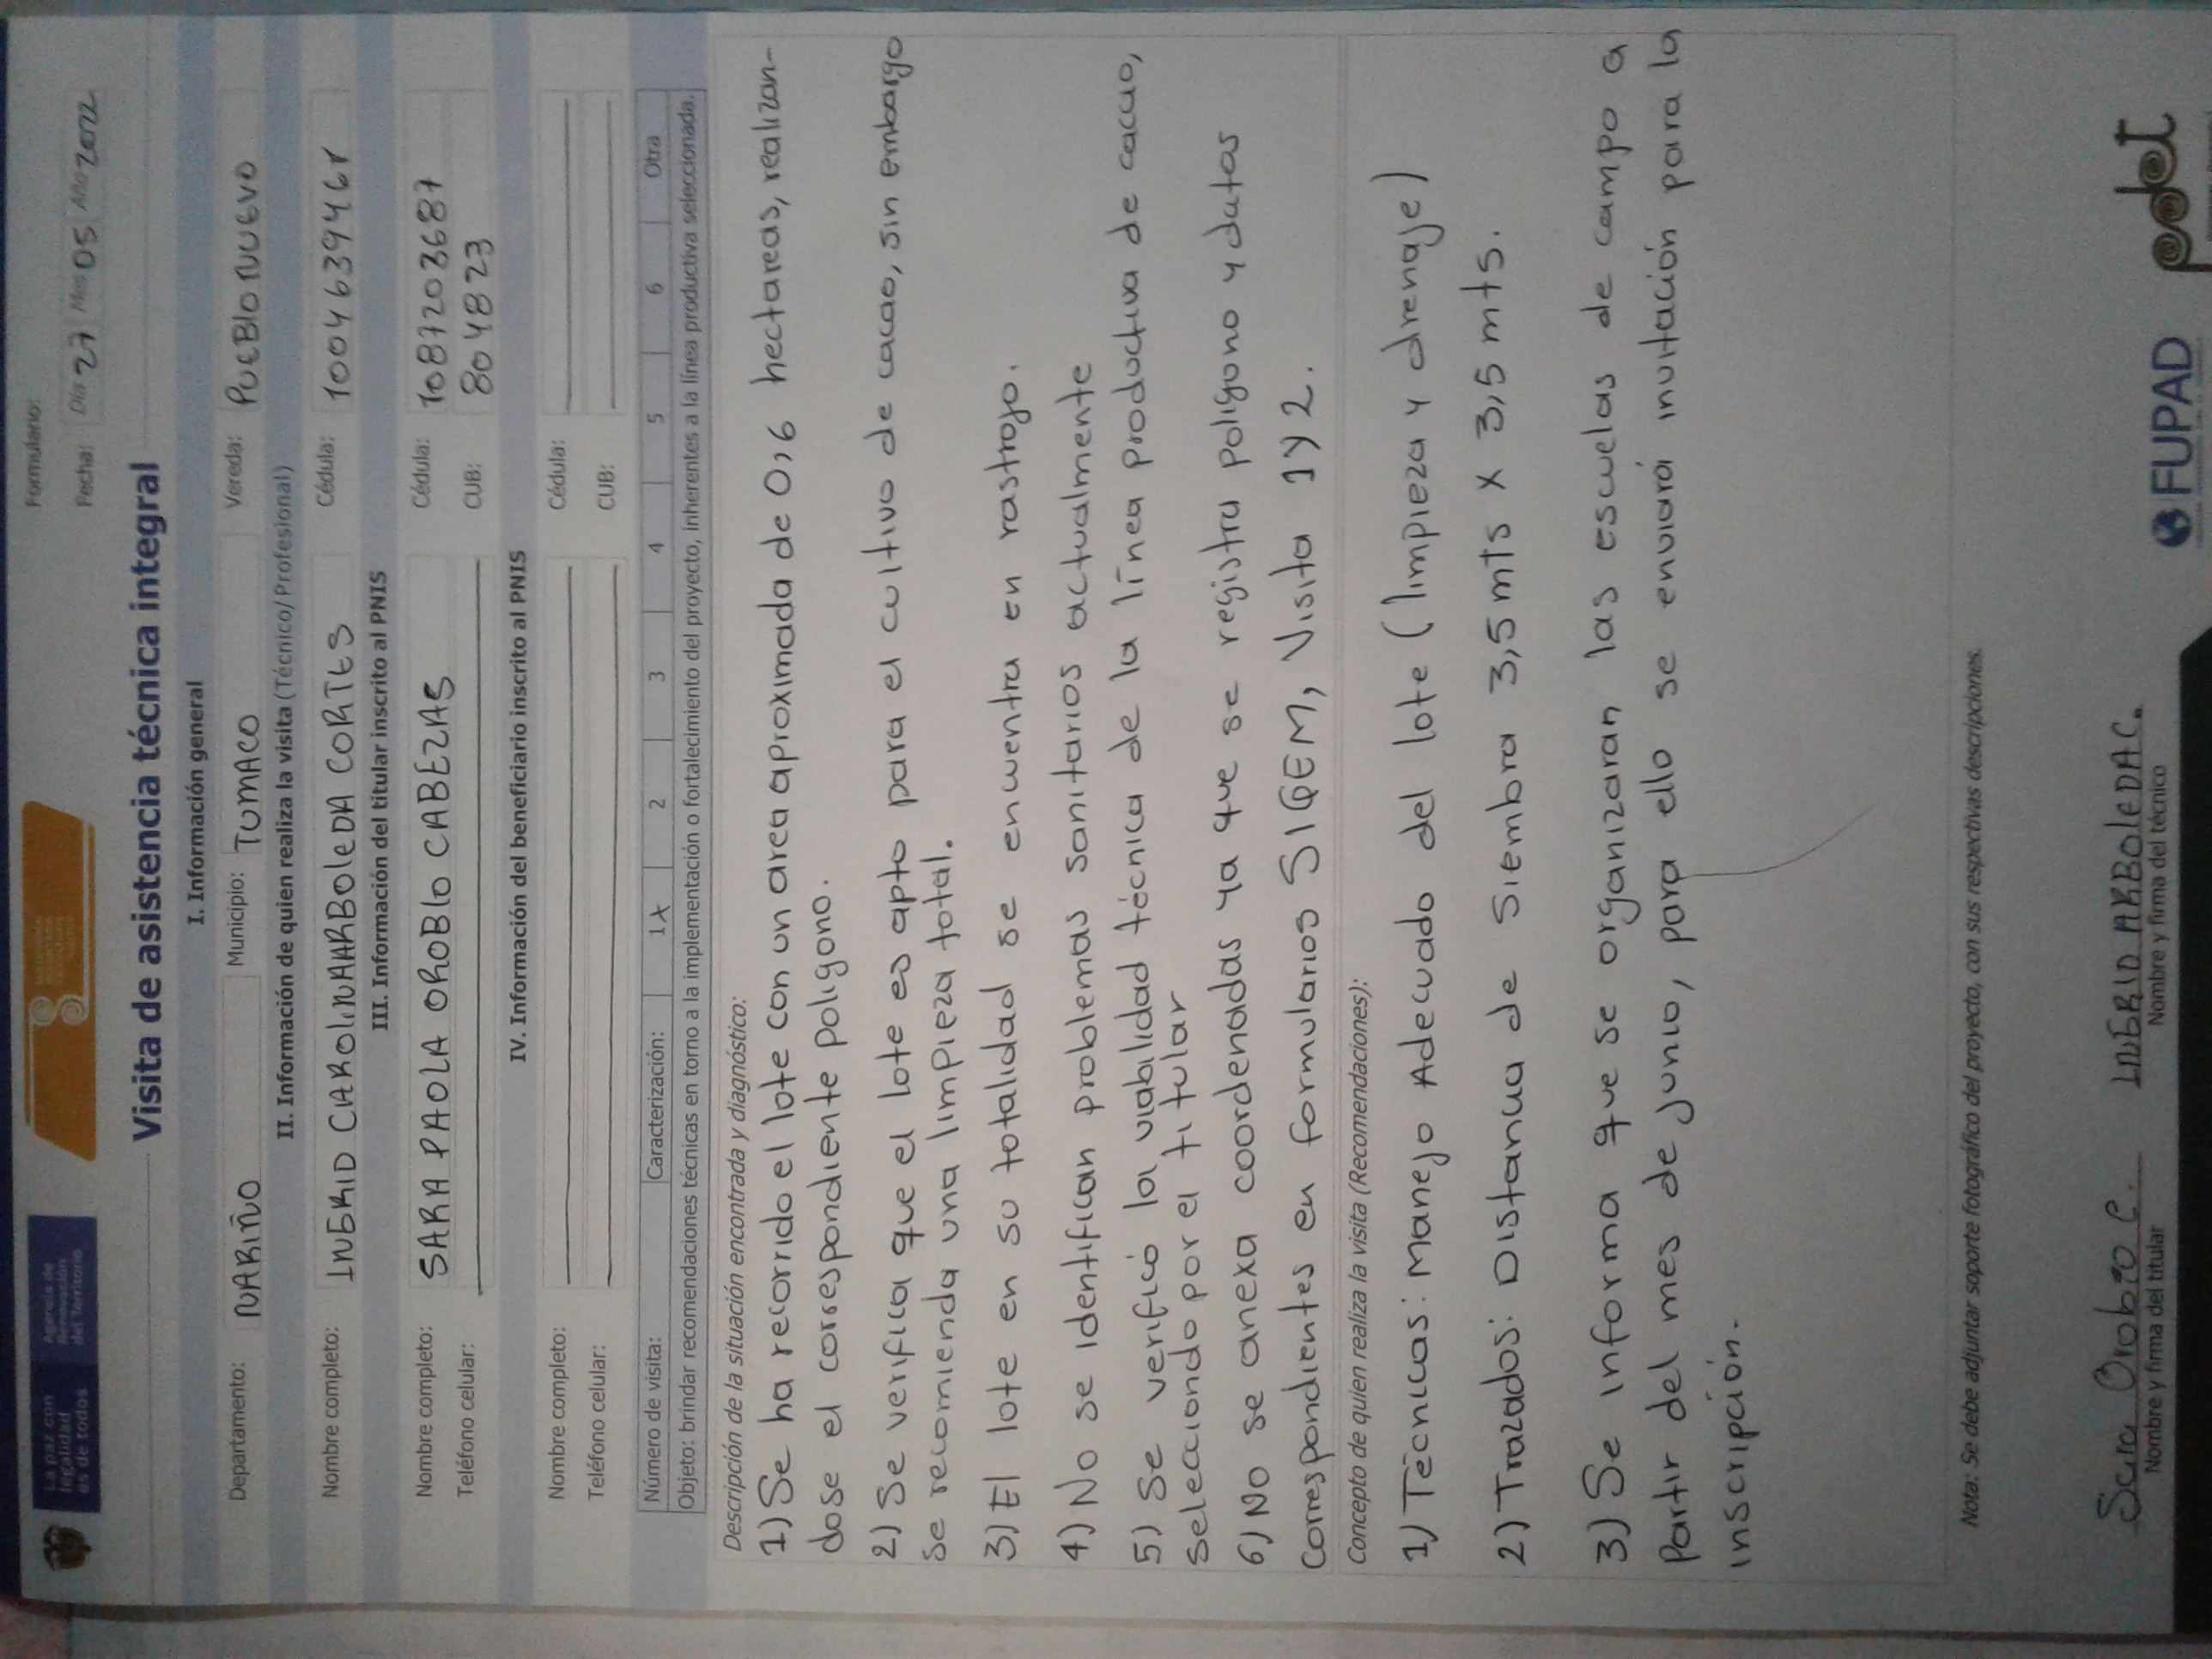 La paz con legalidad es de todos
Agencia de Renovación del Territorio
Formulario:
Fecha: Día 27 Mes 05 Año 2022
Visita de asistencia técnica integral
I. Información general
Departamento: NARIÑO Municipio: TUMACO Vereda: PUEBlO NUEVO
II. Información de quien realiza la visita (Técnico/Profesional)
Nombre completo: INGRID CAROliNA ARBOleDA CORTES Cédula:
III. Información del titular inscrito al PNIS
Nombre completo: SARA PAOLA OROBIO CABEZAS Cédula: 1087203687
Teléfono celular: CUB: 804823
IV. Información del beneficiario inscrito al PNIS
Nombre completo: Cédula:
Teléfono celular: CUB:
Número de visita: Caracterización: 1 X 2 3 4 5 6 Otra
Objeto: brindar recomendaciones técnicas en torno a la implementación o fortalecimiento del proyecto, inherentes a la línea productiva seleccionada.
Descripción de la situación encontrada y diagnóstico:
1) Se ha recorrido el lote con un area aproximada de 0,6 hectareas, realizan-
dose el correspondiente poligono.
2) Se verifica que el lote es apto para el cultivo de cacao, sin embargo
se recomienda una limpieza total.
3) El lote en su totalidad se encuentra en rastrojo.
4) No se identifican problemas sanitarios actualmente
5) Se verificó la viabilidad técnica de la línea productiva de cacao,
seleccionado por el titular
6) No se anexa coordenadas ya que se registra poligono y datos
correspondientes en formularios SIGEM, Visita 1 y 2.
Concepto de quien realiza la visita (Recomendaciones):
1) Técnicas: Manejo Adecuado del lote (limpieza y drenaje)
2) Trazados: Distancia de Siembra 3,5 mts X 3,5 mts.
3) Se informa que se organizaran las escuelas de campo a
Partir del mes de junio, para ello se enviará invitación para la
inscripción.
Nota: Se debe adjuntar soporte fotográfico del proyecto, con sus respectivas descripciones.
Sara Orobio C. INGRID ARBOleDA C.
Nombre y firma del titular Nombre y firma del técnico
FUPAD pdet